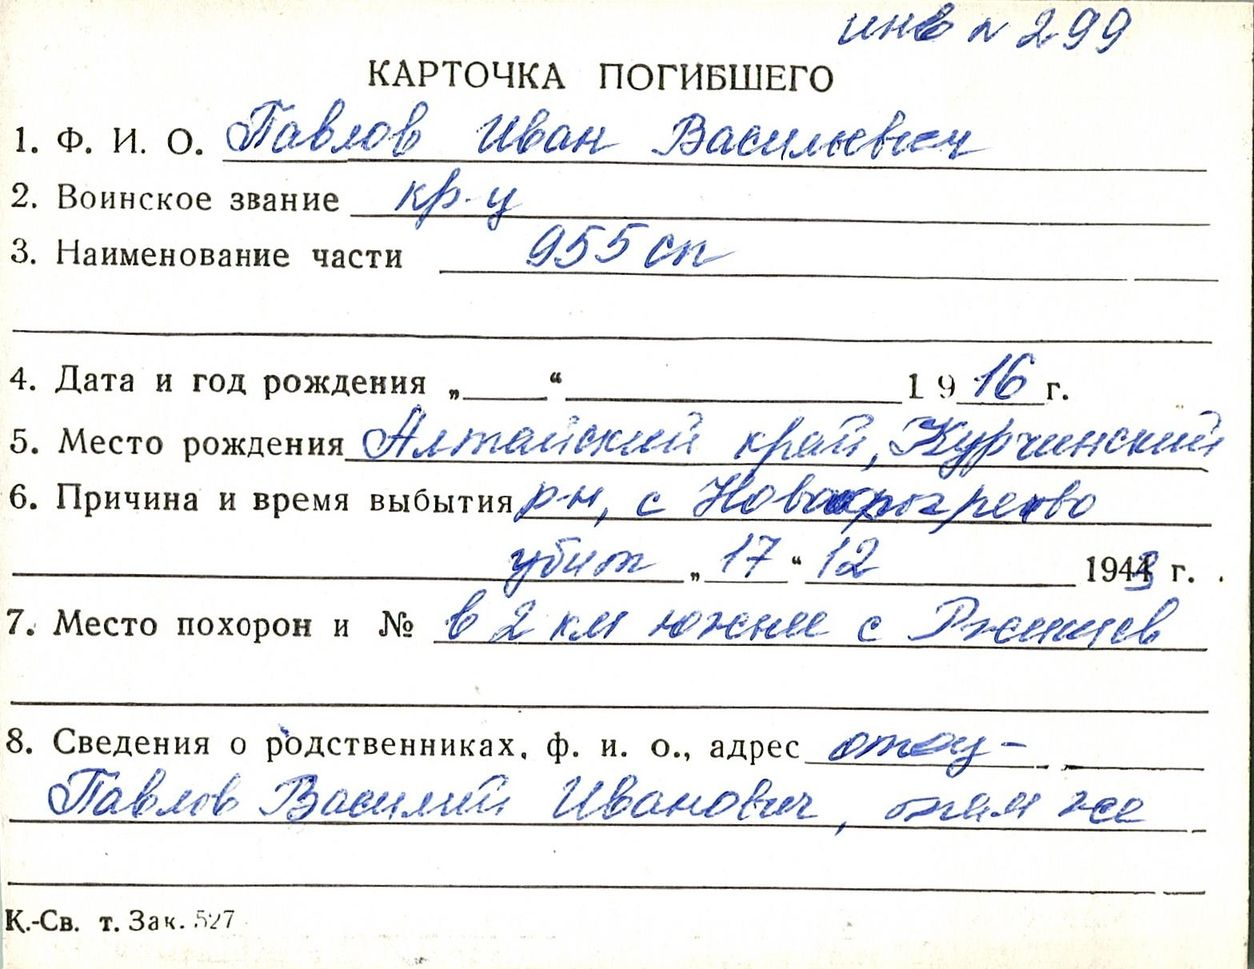 инв N 299
КАРТОЧКА ПОГИБШЕГО
1. Ф. И. О. Павлов Иван Васильевич
2. Воинское звание кр-ц
3. Наименование части 955 сп
4. Дата и год рождения „ “ 1916 г.
5. Место рождения Алтайский край, Курчинский
6. Причина и время выбытия р-н, с
убит „17“ 12 1943 г.
7. Место похорон и № в 2 км южнее с Ржищев
8. Сведения о родственниках, ф. и. о., адрес отец -
Павлов Василий Иванович, там же
К.-Св. т. Зак. 527